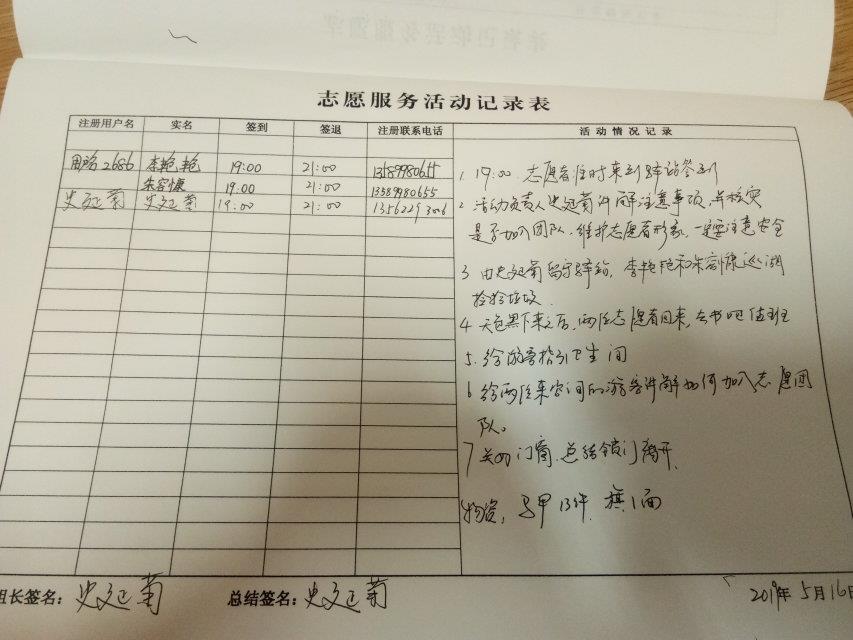 志愿服务活动记录表
注册用户名 实名 签到 签退 注册联系电话 活动情况记录
2686 李艳艳 19:00 21:00 13589980655
朱容慷 19:00 21:00 13589980655
史延菊 史延菊 19:00 21:00
1. 19:00 志愿者准时来到驿站签到
2 活动负责人史延菊讲解注意事项,并核实
是否加入团队,维护志愿者形象,一定要注意安全
3 由史延菊留守驿站,李艳艳和朱容慷巡湖
捡拾垃圾.
4 天色黑下来之后,两位志愿者回来,去书吧值班
5. 给游客指引卫生间
6 给两位来咨询的游客讲解如何加入志愿团
队。
7 关好门窗.总结锁门离开.
物资, 马甲13件. 旗1面
组长签名: 史延菊 总结签名: 史延菊 2019年5月16日